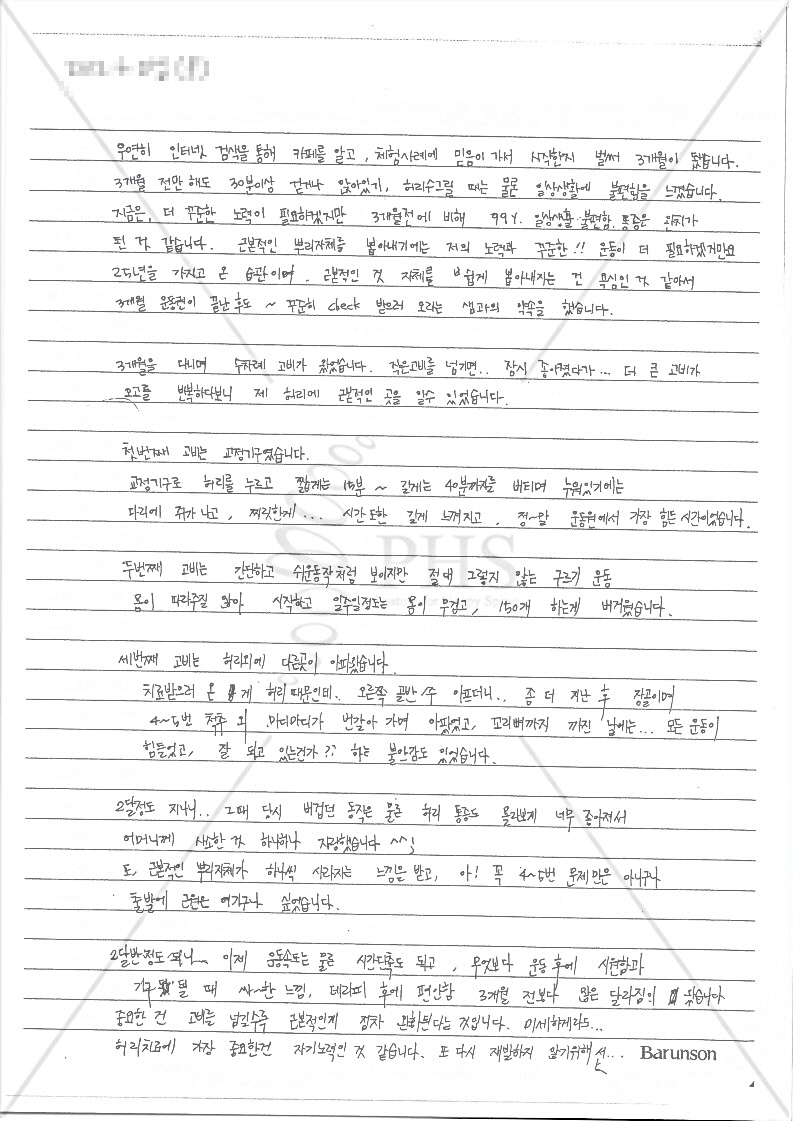 우연히 인터넷 검색을 통해 카페를 알고, 체험사례에 믿음이 가서 시작한지 벌써 3개월이 됐습니다.
3개월 전만 해도 30분이상 걷거나 앉아있기, 허리수그릴 때는 물론 일상생활에 불편함을 느꼈습니다.
지금은, 더 꾸준한 노력이 필요하겠지만 3개월전에 비해 99% 일상생활·불편함·통증은 완치가
된 것 같습니다. 근본적인 뿌리자체를 뽑아내기에는 저의 노력과 꾸준한!! 운동이 더 필요하겠지만요
25년을 가지고 온 습관이며, 근본적인 것 자체를 쉽게 뽑아내자는 건 욕심인 것 같아서
3개월 운동권이 끝난 후도 ~ 꾸준히 check 받으러 오라는 샘과의 약속을 했습니다.
3개월을 다니며 수차례 고비가 왔었습니다. 작은고비를 넘기면.. 잠시 좋아졌다가... 더 큰 고비가
오고를 반복하다보니 제 허리에 근본적인 곳을 알수 있었습니다.
첫번째 고비는 교정기구였습니다.
교정기구로 허리를 누르고 짧게는 15분 ~ 길게는 40분까지를 버티며 누워있기에는
다리에 쥐가 나고, 찌릿한게... 시간 또한 길게 느껴지고, 정~말 운동원에서 가장 힘든 시간이었습니다.
PHS
두번째 고비는 간단하고 쉬운동작처럼 보이지만 절대 그렇지 않는 구르기 운동
몸이 따라주질 않아 시작하고 일주일정도는 몸이 무겁고, 150개 하는게 버거웠습니다.
세번째 고비는 허리외에 다른곳이 아파왔습니다.
치료받으러 온 게 허리때문인데.. 오른쪽 골반 쭈 아프더니.. 좀 더 지난 후 장골이며
4~5번 척추 외 마디마디가 번갈아 가며 아팠었고, 꼬리뼈까지 까진 날에는... 모든 운동이
힘들었고, 잘 되고 있는건가?? 하는 불안감도 있었습니다.
2달정도 지나니.. 그때 당시 버겁던 동작은 물론 허리 통증도 몰라보게 너무 좋아져서
어머니께 사소한 것 하나하나 자랑했습니다 ^^;
또, 근본적인 뿌리자체가 하나씩 사라지는 느낌을 받고, 아! 꼭 4~5번 문제만은 아니구나
출발에 근원은 여기구나 싶었습니다.
2달반정도 되니... 이제 운동속도는 물론 시간단축도 되고, 무엇보다 운동 후에 시원함과
기구 뗄 때 싸~한 느낌, 테라피 후에 편안함 3개월 전보다 많은 달라짐이 있습니다
중요한 건 고비를 넘길수록 근본적인게 점차 완화된다는 것입니다. 미세하게라도...
허리치료에 가장 중요한건 자기노력인 것 같습니다. 또 다시 재발하지 않기위해서...
Barunson